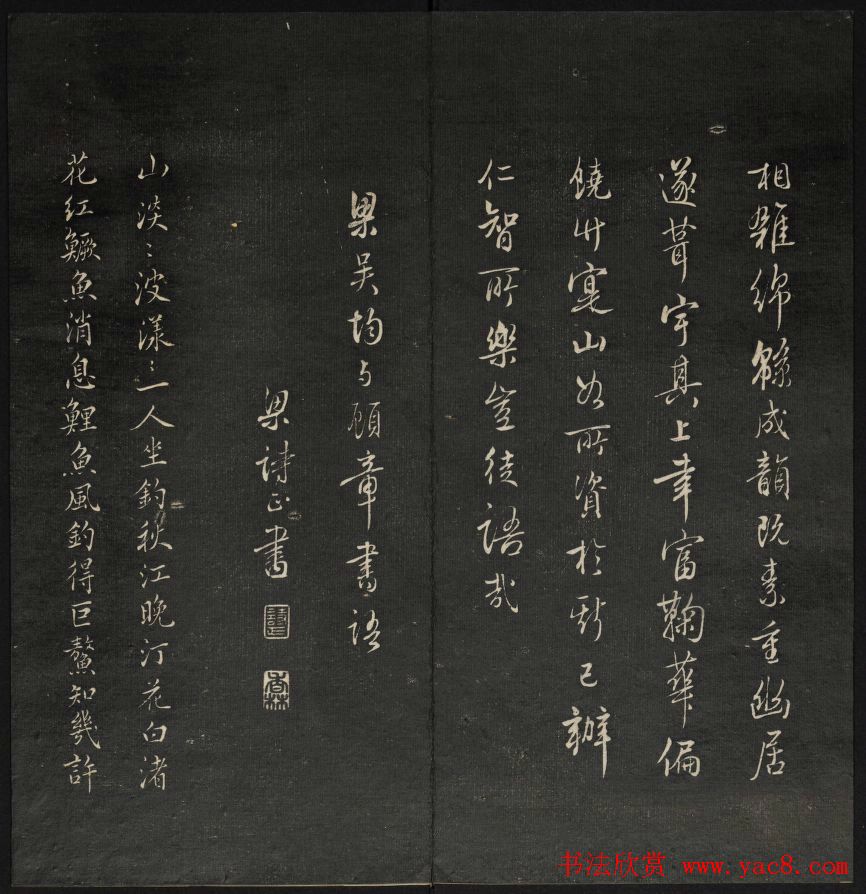 相雜綿緜成韻既素重幽居
遂葺宇其上幸富鞠華偏
饒竹寔山谷所資於斯已辦
仁智所樂豈徒語哉
梁吴均与顾章書語
梁詩正書
山淡〻波漾〻一人坐釣秋江晚汀花白渚
花红鱖魚消息鯉魚風釣得巨鰲知幾許
书法欣赏 www.yac8.com